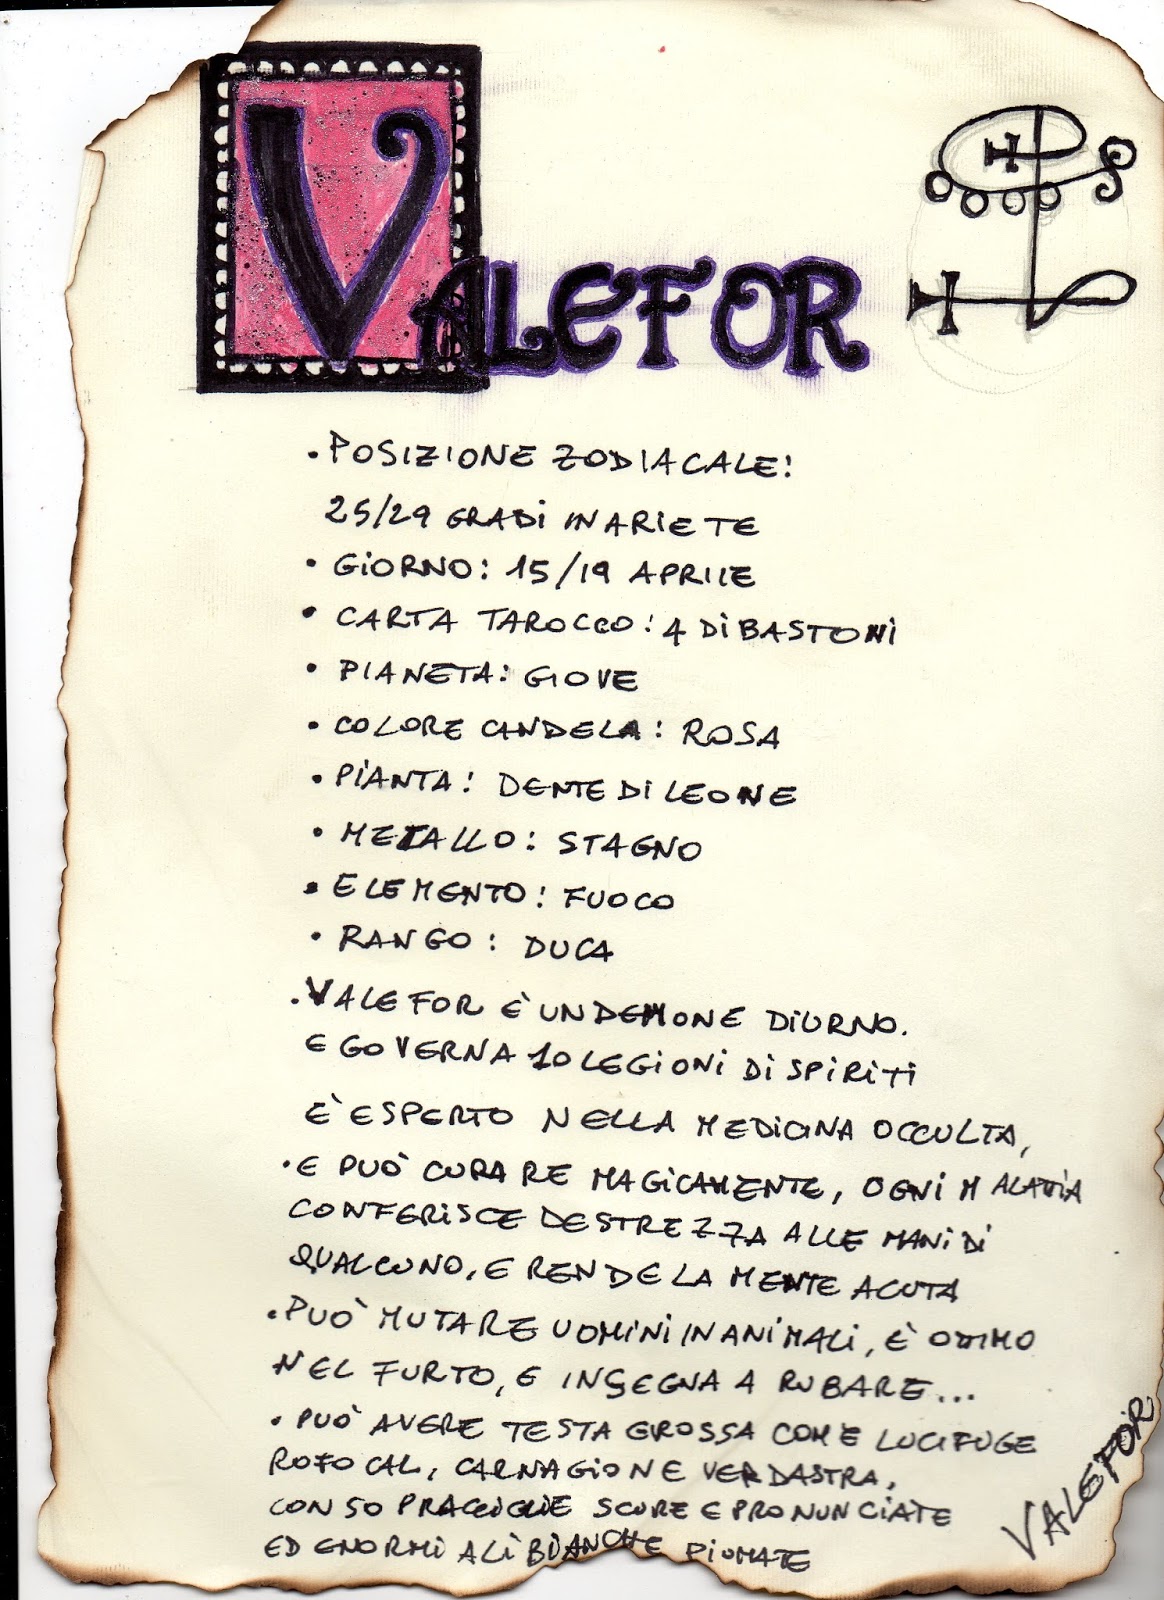 VALEFOR
• POSIZIONE ZODIACALE:
25/29 GRADI IN ARIETE
• GIORNO: 15/19 APRILE
• CARTA TAROCCO: 4 DI BASTONI
• PIANETA: GIOVE
• COLORE CANDELA: ROSA
• PIANTA: DENTE DI LEONE
• METALLO: STAGNO
• ELEMENTO: FUOCO
• RANGO: DUCA
• VALEFOR È UN DEMONE DIURNO.
E GOVERNA 10 LEGIONI DI SPIRITI
È ESPERTO NELLA MEDICINA OCCULTA,
• E PUÒ CURARE MAGICAMENTE, OGNI MALATTIA
CONFERISCE DESTREZZA ALLE MANI DI
QUALCUNO, E RENDE LA MENTE ACUTA
• PUÒ MUTARE UOMINI IN ANIMALI, È OTTIMO
NEL FURTO, E INSEGNA A RUBARE...
• PUÒ AVERE TESTA GROSSA COME LUCIFUGE
ROFOCAL, CARNAGIONE VERDASTRA,
CON SOPRACCIGLIE SCURE E PRONUNCIATE
ED ENORMI ALI BIANCHE PIUMATE
VALEFOR